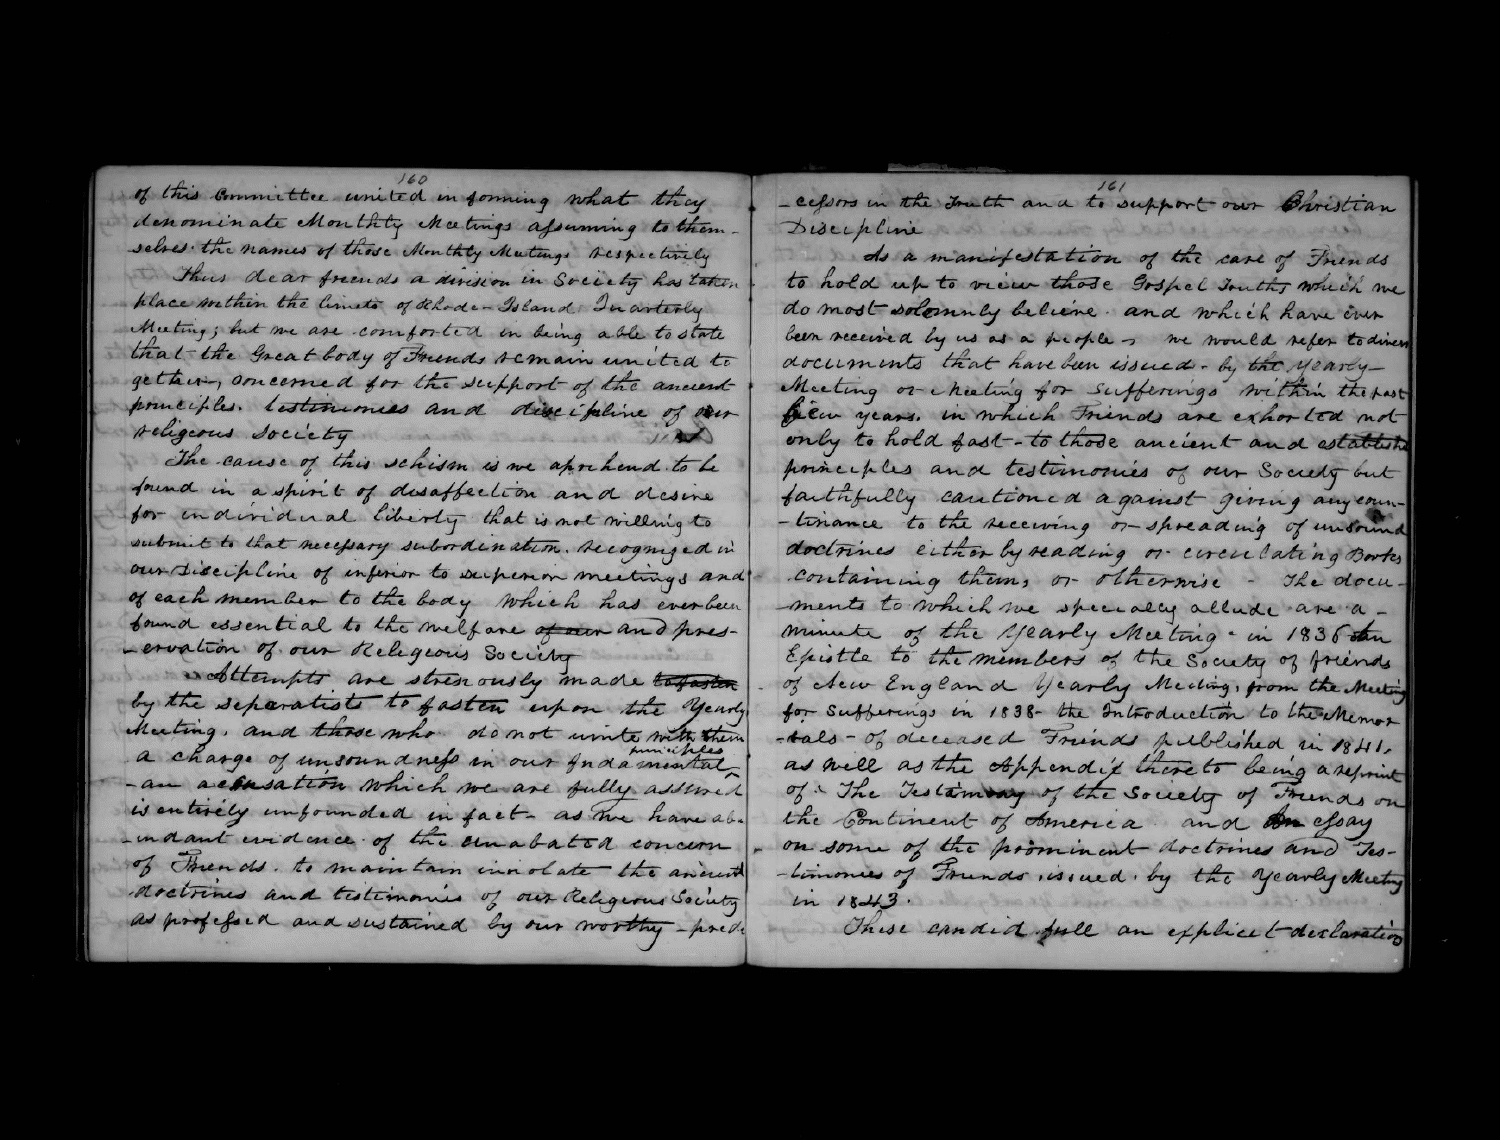 160
of this Committee united in forming what they
denominate Monthly Meetings assuming to them-
selves the names of those Monthly Meetings respectively
Thus dear friends a division in Society has taken
place within the limets of Rhode-Island Quarterly
Meeting; but we are comforted in being able to state
that the Great body of Friends remain united to
gether, concerned for the support of the ancient
principles. testimonies and discipline of our
religeous Society
The cause of this schism is we aprehend to be
found in a spirit of desaffection and desire
for individual liberty that is not willing to
submit to that necessary subordination. recognized in
our Discipline of inferior to superior meetings and
of each member to the body which has ever been
found essential to the welfare of our and pres-
-ervation of our Relegeous Society
Attempts are strenously made to fasten
by the separatists to fasten upon the Yearly
Meeting. and those who do not unite with them
principles
a charge of unsoundness in our fndamental
-an accusation which we are fully assured
is entirely unfounded in fact- as we have ab-
-undant evidence of the unabated concern
of Friends. to maintain inviolate the ancient
doctrines and testimonies of our Relegeous Society
as professed and sustained by our worthy - prede
161
-cessors in the Truth and to support our Christian
Discipline
As a manifestation of the care of Friends
to hold up to view those Gospel Truths which we
do most solomnly believe and which have ever
been received by us as a people - we would refer to divers
documents that have been issued - by the Yearly-
Meeting or Meeting for Sufferings within the past
few years. in which Friends are exhorted not
only to hold fast - to those ancient and establishe
principles and testimonies of our Society but
faithfully cautioned against giving any coun-
-tinance to the receiving or spreading of unsound
doctrines either by reading or circulating Books
containing them, or otherwise - The docu-
-ments to which we specially allude are a -
minute of the Yearly Meeting - in 1836 An
Epistle to the members of the Society of friends
of New England Yearly Meeting, from the Meeting
for Sufferings in 1838- the Introduction to the Memor
-ials - of deceased Friends published in 1841.
as well as the Appendix thereto being a reprint
of The Testamony of the Society of Friends on
the Continent of America and An essay
on some of the prominent doctrines and Tes-
-timonies of Friends issued by the Yearly Meeting
in 1843.
These candid full an explicet declaration